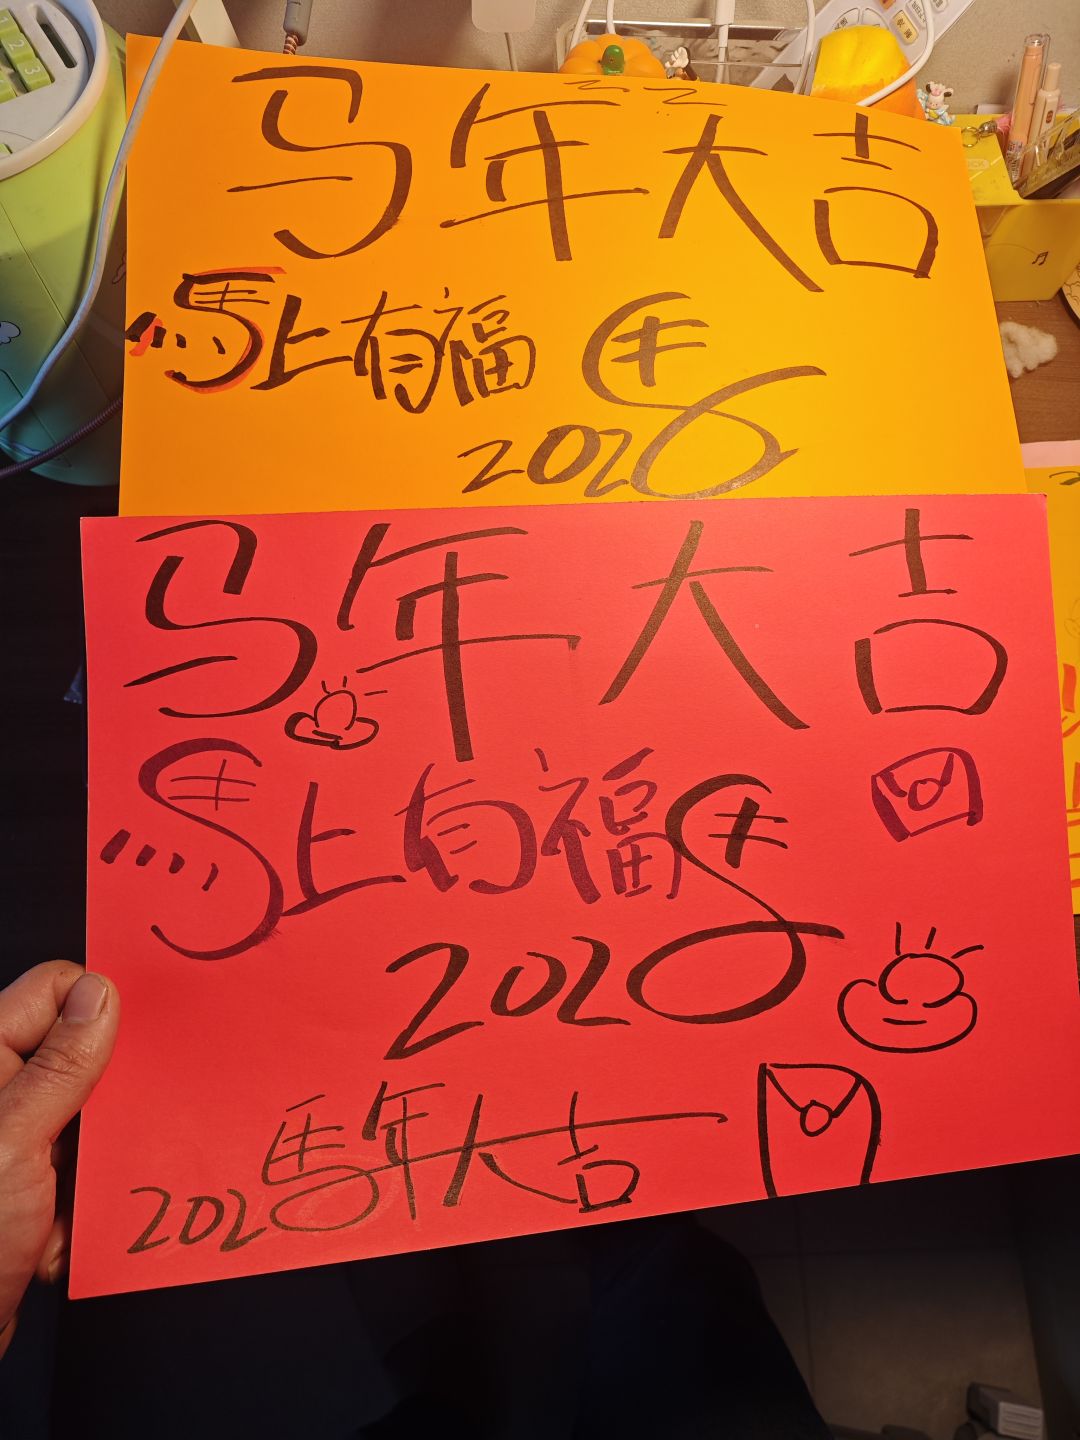 马年大吉
馬上有福
2026
马年大吉
馬上有福
2026
2026馬年大吉